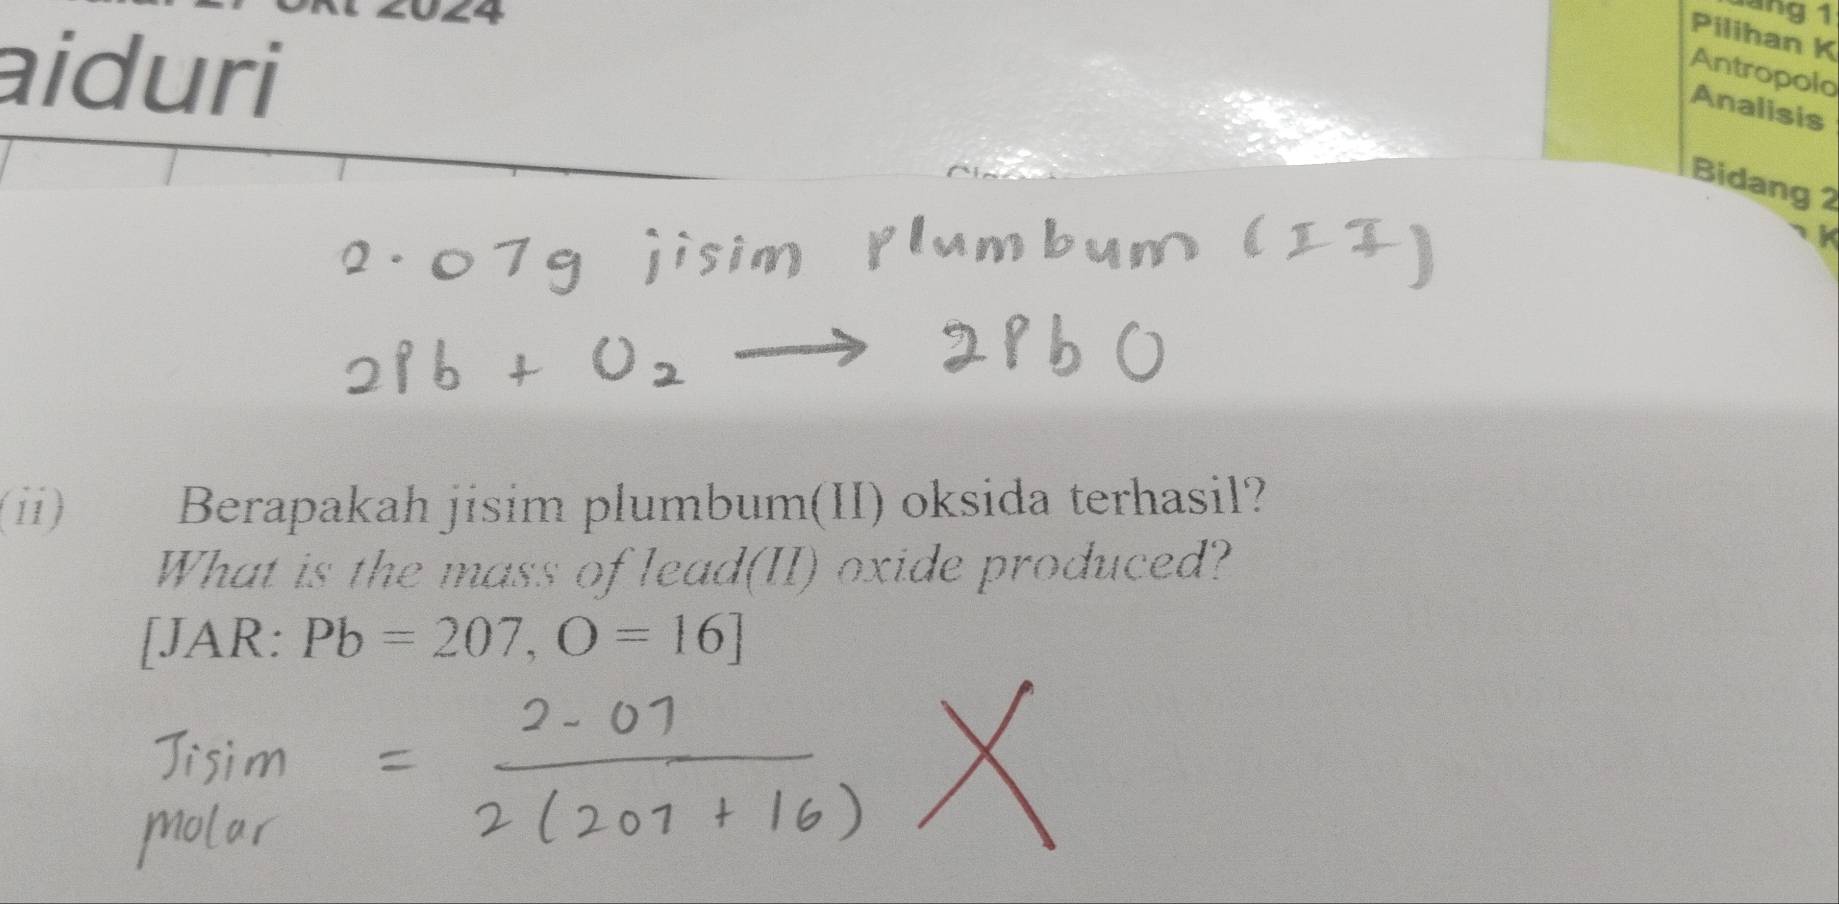 2024
aiduri
Pilihan K
Antropolo
Analisis
Bidang 2
2.07g jisim plumbum (II)
2Pb + O₂ → 2PbO
(ii) Berapakah jisim plumbum(II) oksida terhasil?
What is the mass of lead(II) oxide produced?
[JAR: Pb = 207, O = 16]
Jisim molar = 2.07 / 2(207 + 16)